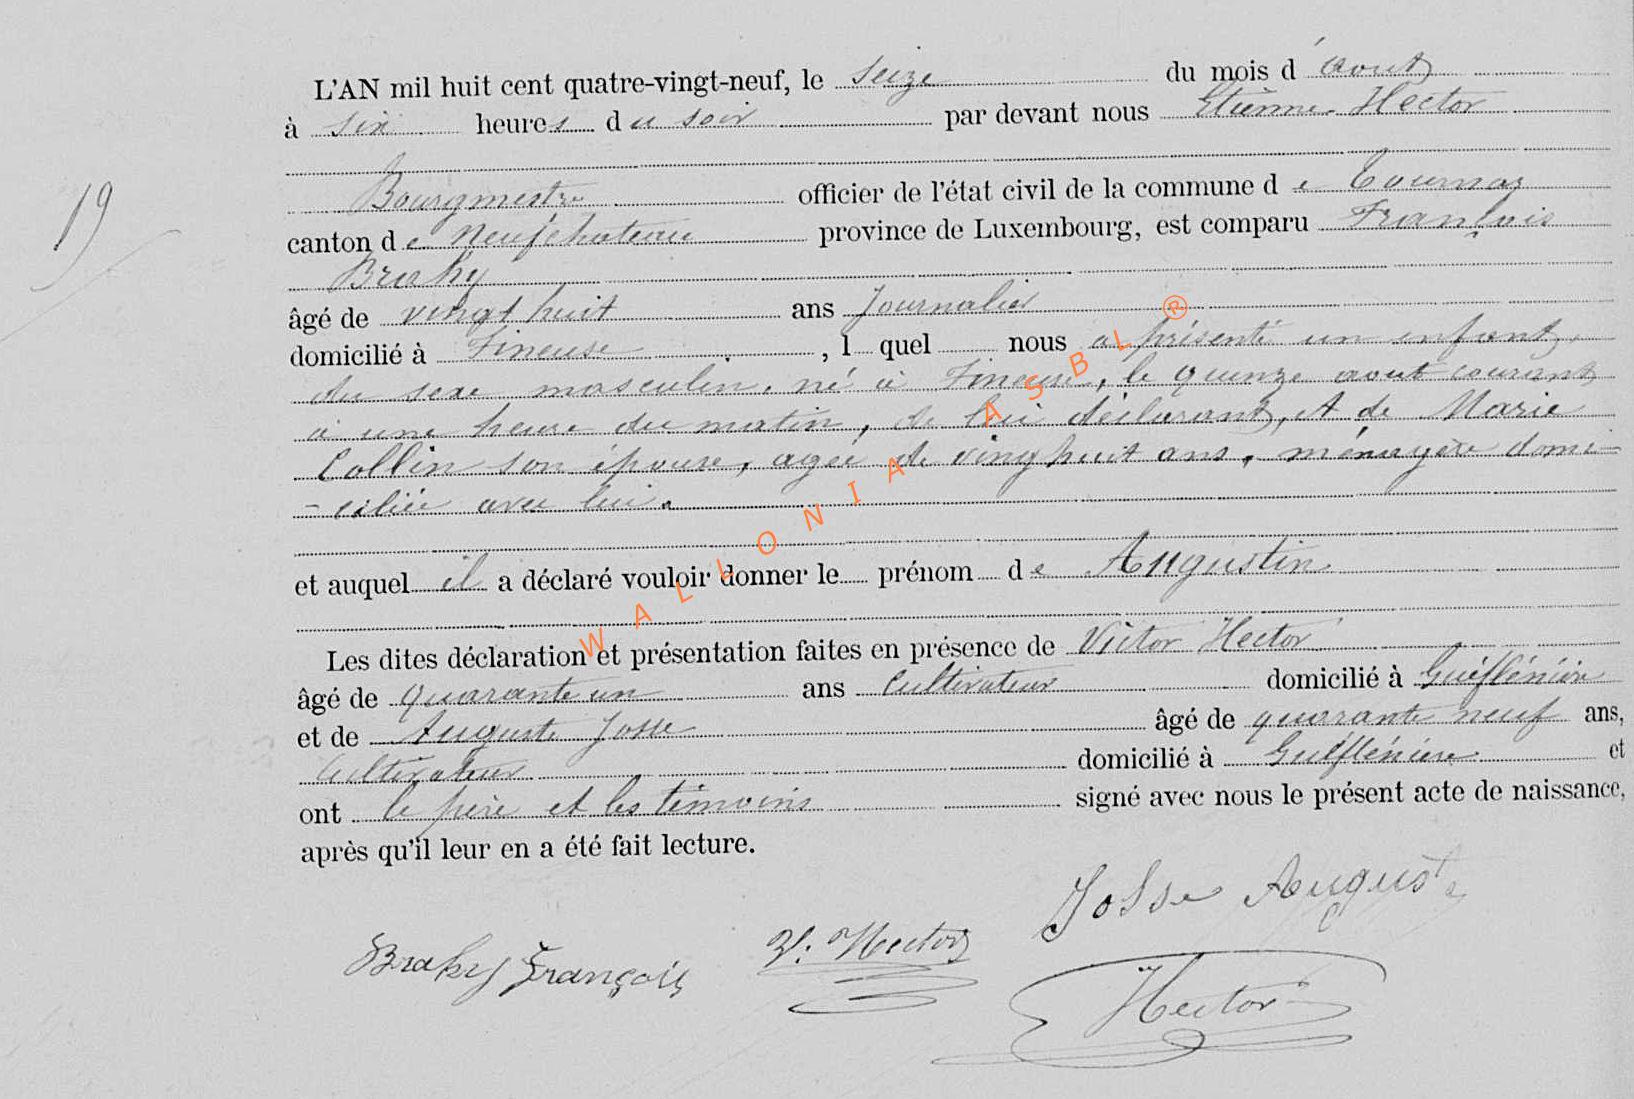 L'AN mil huit cent quatre-vingt-neuf, le seize du mois d'aout
à six heures du soir par devant nous Etienne Hector
Bourgmestre officier de l'état civil de la commune de Tournay
19
canton de Neufchateau province de Luxembourg, est comparu François
Brahy
âgé de vingt huit ans Journalier
domicilié à Fineuse, lquel nous a présenté un enfant,
du sexe masculin, né à Fineuse, le quinze aout courant
à une heure du matin, de lui déclarant, et de Marie
Collin son épouse, agée de vinghuit ans, ménagère domi-
-ciliée avec lui.
et auquel il a déclaré vouloir donner le prénom de Augustin
Les dites déclaration et présentation faites en présence de Victor Hector
âgé de quarante un ans Cultivateur domicilié à
et de Auguste Josse âgé de quarante neuf ans,
Cultivateur domicilié à et
ont le père et les témoins signé avec nous le présent acte de naissance,
après qu'il leur en a été fait lecture.
Josse Auguste
Brahy François V. Hector
Hector
WALLONIA ASBL ®